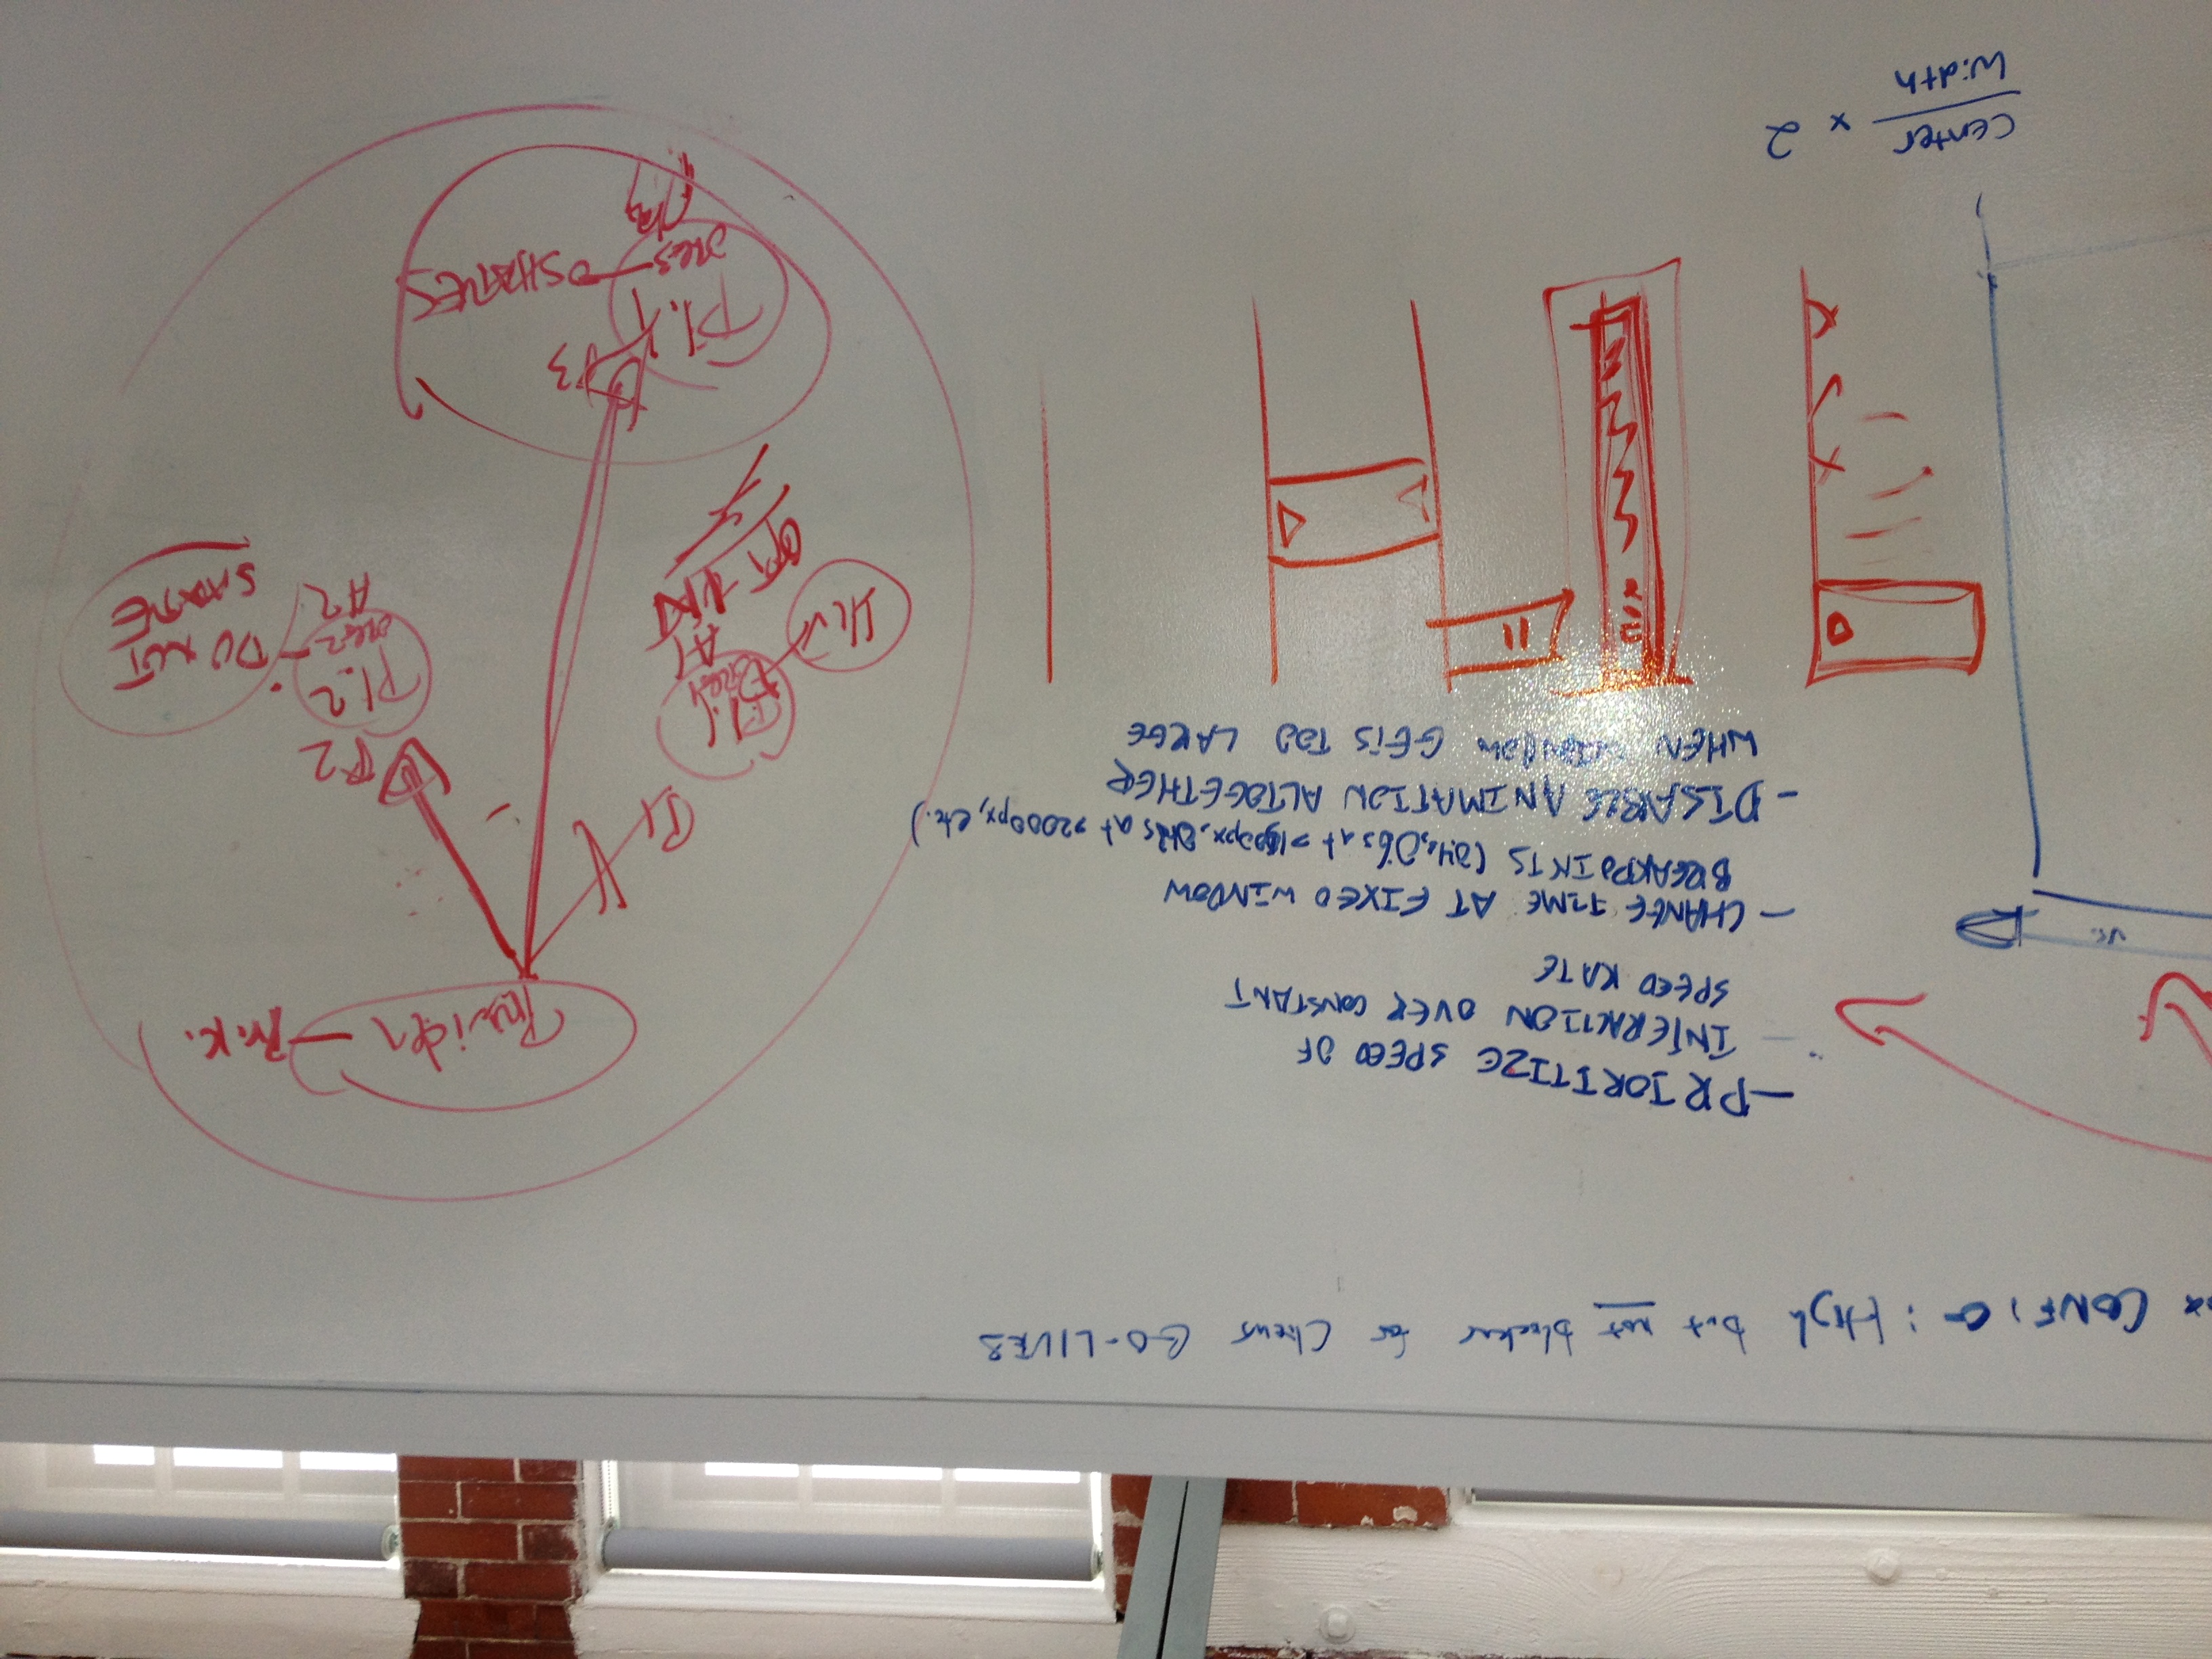 CONFIG: High but not blocker for Client GO-LIVES
— PRIORITIZE SPEED OF
INTERACTION OVER CONSTANT
SPEED RATE
— CHANGE TIME AT FIXED WINDOW
BREAKPOINTS (0.4s, 0.6s at >1500px, at >2000px, etc.)
- DISABLE ANIMATION ALTOGETHER
WHEN WINDOW GETS TOO LARGE
vs.
center
width
x 2
Provider
P1
P2
Pt.2
ORG2
A2
DO NOT
SHARE
HIV
A1
P3
Pt.1
ORG3
SHARES